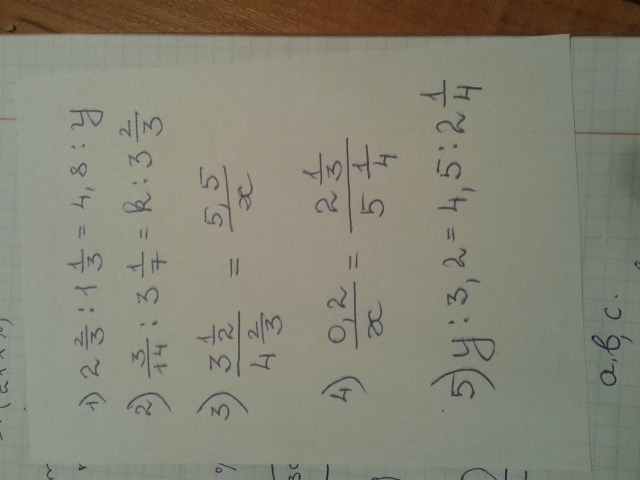 1) 2 2/3 : 1 1/3 = 4,8 : y
2) 3/14 : 3 1/7 = k : 3 2/3
3) 3 1/2 / 4 2/3 = 5,5 / x
4) 0,2 / x = 2 1/3 / 5 1/4
5) y : 3,2 = 4,5 : 2 1/4
a, b, c.